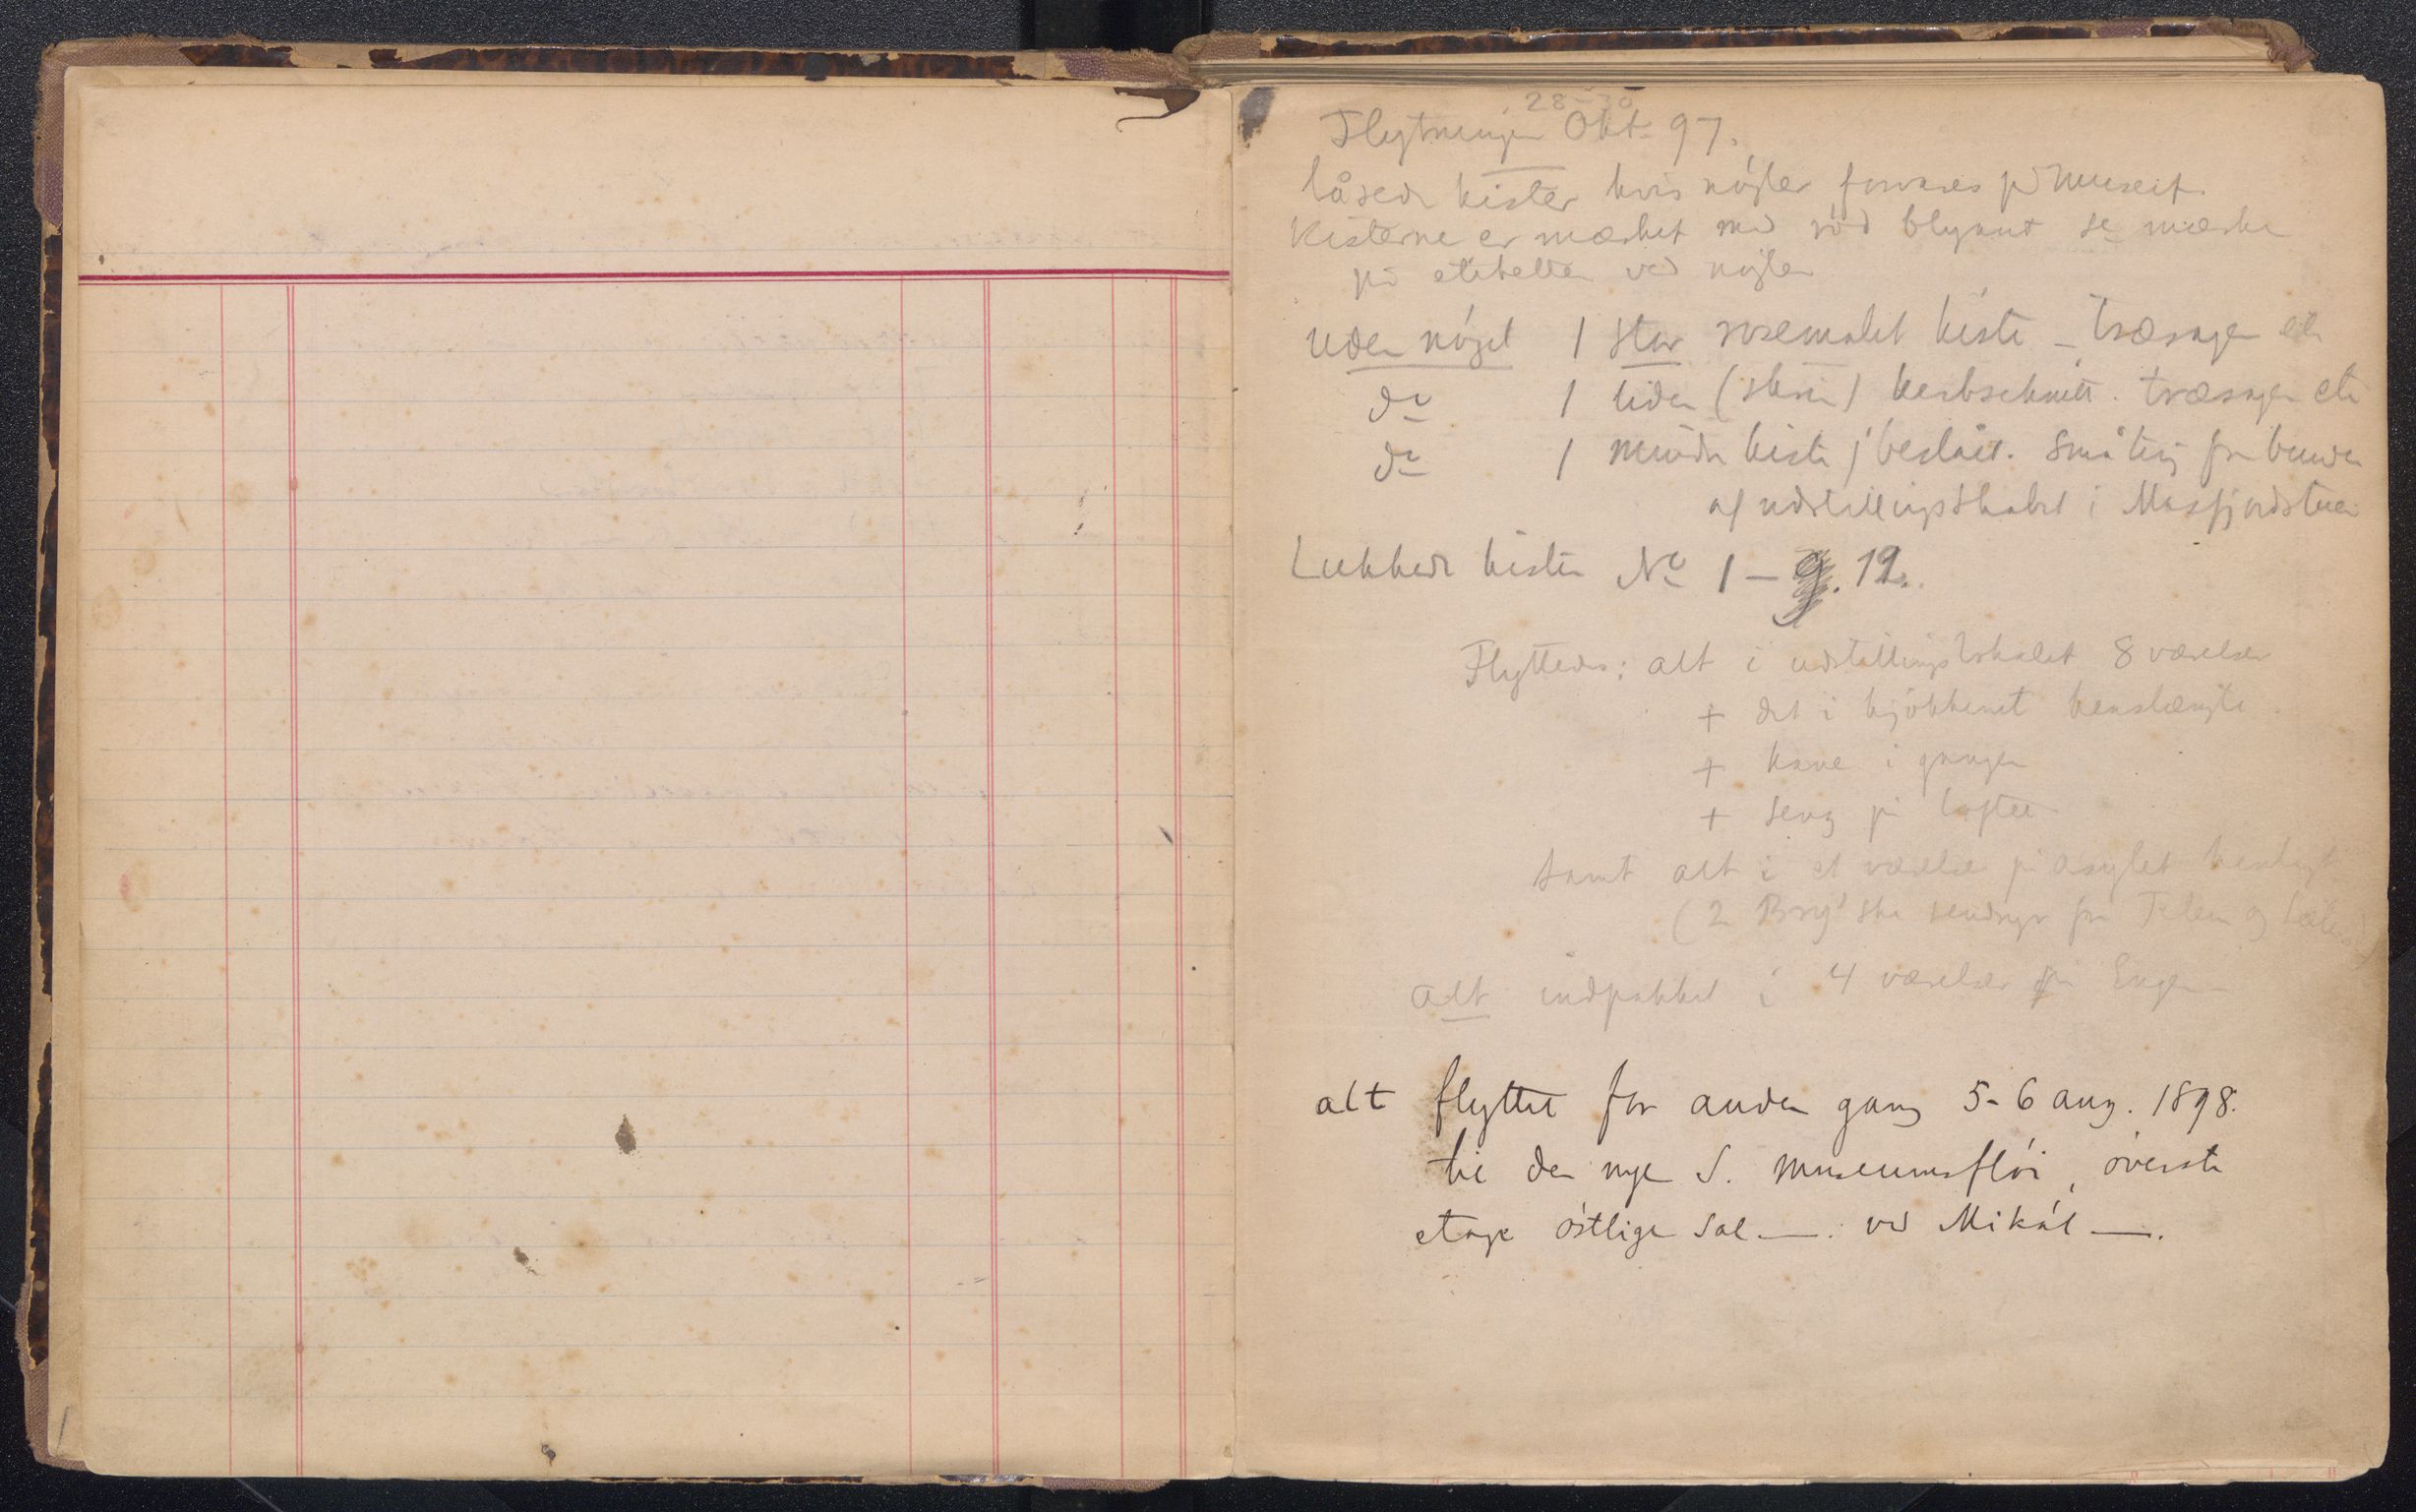 28-30
Flytningen Okt. 97.
låsede kister hvis nøgler forvares på Museet.
Kisterne er mærket med rød blyant se mærke
på etiketten ved nøglen
uden nøgel 1 stor rosemalet kiste – træsager etc
do 1 liden (skrin) kerbschnitt. træsager etc
do 1 mindre kiste j beslået. Småting fra bunden
af udstillingsskabet i Masfjordstuen
Lukkede kister No 1 – 12.
Flyttedes: alt i udstillingslokalet 8 værelser
+ det i kjökkenet henslængte.
+ kane i gangen
+ seng på loftet
samt alt i et værelse på asylet henlagt
(2 sendinger fra Telem og Sæters
alt indpakket i 4 værelser på Engen
alt flyttet for anden gang 5-6 aug. 1898.
til den nye S. museumsflöi, överste
etage östlige Sal —. ved Mikál —.